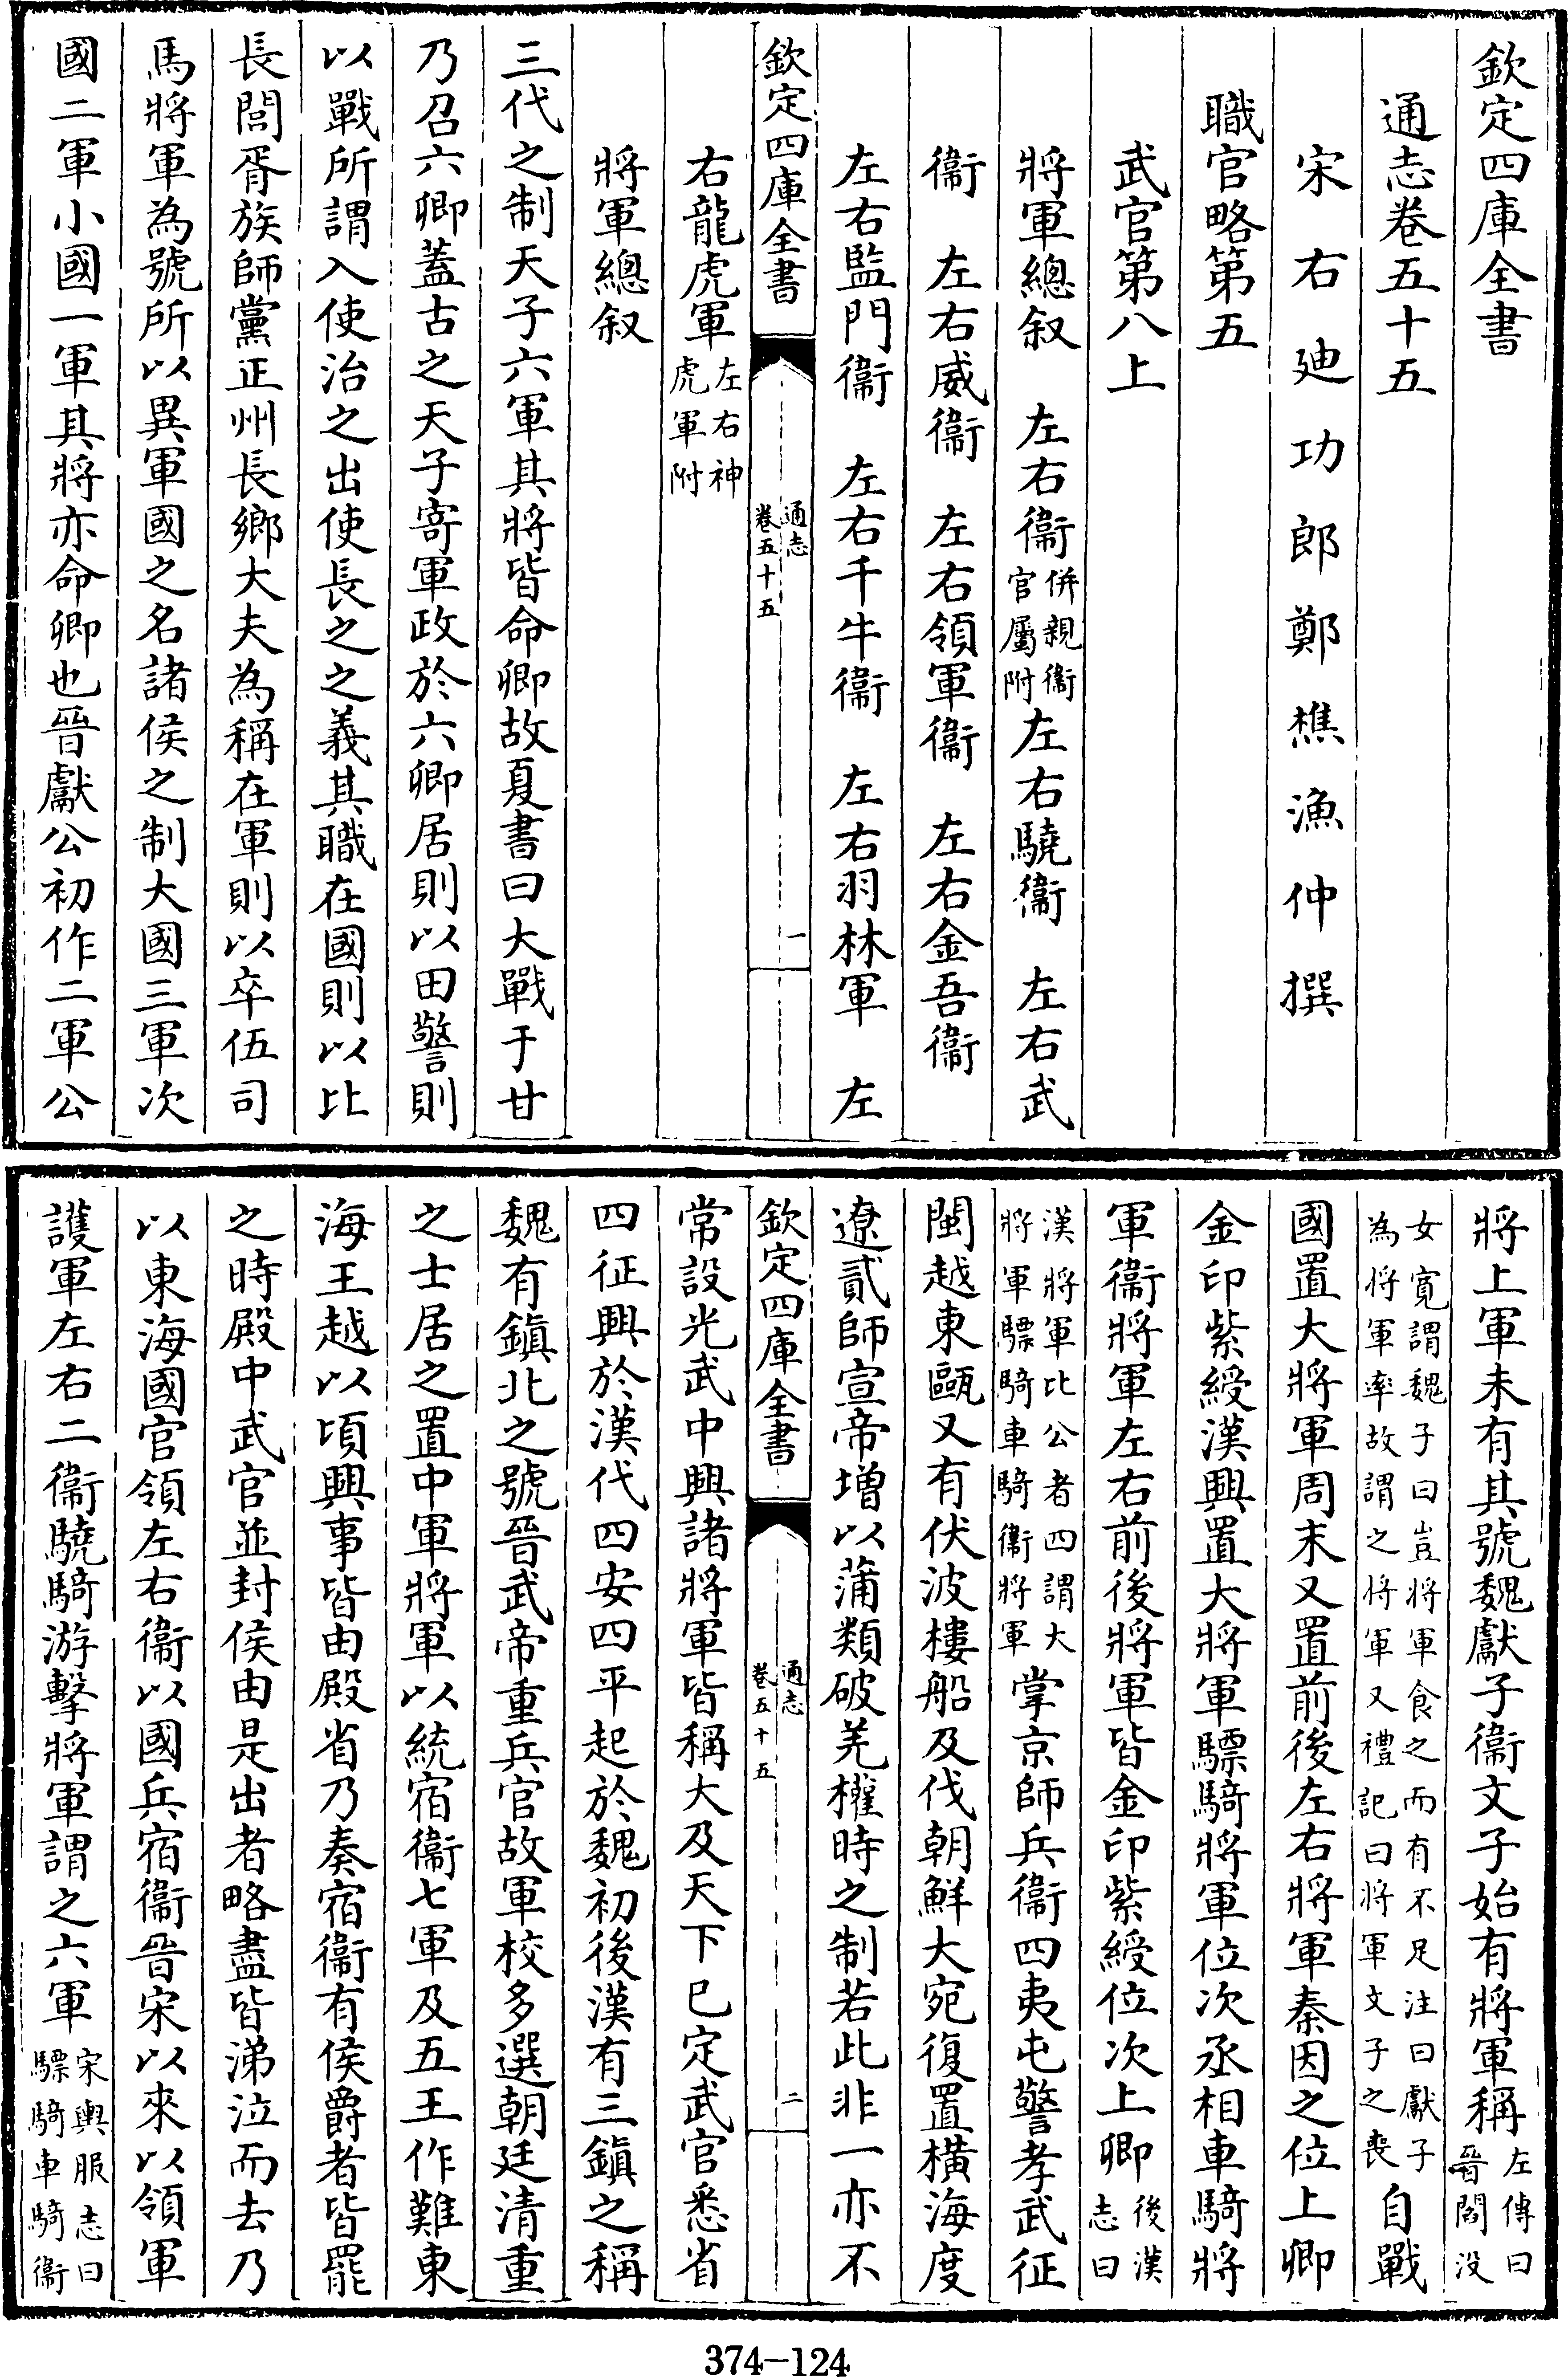 欽定四庫全書
通志卷五十五
宋右迪功郎鄭樵漁仲撰
職官略第五
武官第八上
將軍總叙　左右衞併親衞官屬附左右驍衞　左右武
衞　左右威衞　左右領軍衞　左右金吾衞
左右監門衞　左右千牛衞　左右羽林軍　左
欽定四庫全書　通志卷五十五　一
右龍虎軍左右神虎軍附
將軍總叙
三代之制天子六軍其將皆命卿故夏書曰大戰于甘
乃召六卿蓋古之天子寄軍政於六卿居則以田警則
以戰所謂入使治之出使長之之義其職在國則以比
長閭胥族師黨正州長鄉大夫為稱在軍則以卒伍司
馬將軍為號所以異軍國之名諸侯之制大國三軍次
國二軍小國一軍其將亦命卿也晉獻公初作二軍公
將上軍未有其號魏獻子衞文子始有將軍稱左傳曰晉閻没
女寛謂魏子曰豈將軍食之而有不足注曰獻子為將軍率故謂之將軍又禮記曰將軍文子之喪自戰
國置大將軍周末又置前後左右將軍秦因之位上卿
金印紫綬漢興置大將軍驃騎將軍位次丞相車騎將
軍衞將軍左右前後將軍皆金印紫綬位次上卿後漢志曰
漢將軍比公者四謂大將軍驃騎車騎衞將軍掌京師兵衞四夷屯警孝武征
閩越東甌又有伏波樓船及伐朝鮮大宛復置橫海度
遼貳師宣帝增以蒲類破羌權時之制若此非一亦不
欽定四庫全書　通志卷五十五　二
常設光武中興諸將軍皆稱大及天下已定武官悉省
四征興於漢代四安四平起於魏初後漢有三鎮之稱
魏有鎮北之號晉武帝重兵官故軍校多選朝廷清重
之士居之置中軍將軍以統宿衞七軍及五王作難東
海王越以頃興事皆由殿省乃奏宿衞有侯爵者皆罷
之時殿中武官並封侯由是出者略盡皆涕泣而去乃
以東海國官領左右衞以國兵宿衞晉宋以來以領軍
護軍左右二衞驍騎游擊將軍謂之六軍宋輿服志曰驃騎車騎衞
374-124